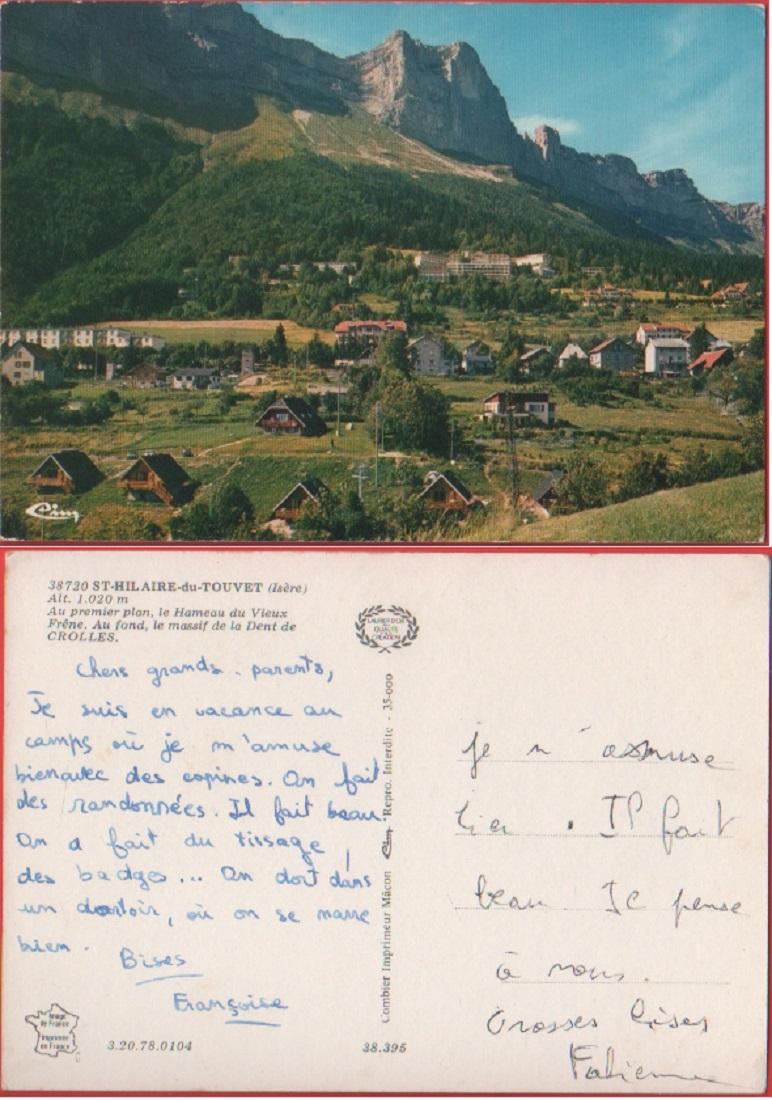 Cim
38720 ST-HILAIRE-du-TOUVET (Isère)
Alt. 1.020 m
Au premier plan, le Hameau du Vieux
Frêne. Au fond, le massif de la Dent de
CROLLES.
LAURIER D'OR
QUALITE
CREATION
Chers grands-parents,
Je suis en vacance au
camps où je m'amuse
bien avec des copines. On fait
des randonnées. Il fait beau.
On a fait du tissage,
des badges... On dort dans
un dortoir, où on se marre
bien.
Bises
Françoise
Image
de France
Imprimée
en France
3.20.78.0104
38.395
Combier Imprimeur Mâcon Cim Repro. Interdite - 35-000
je m'amuse
bien. Il fait
beau Je pense
à vous.
Grosses bises
Fabienne